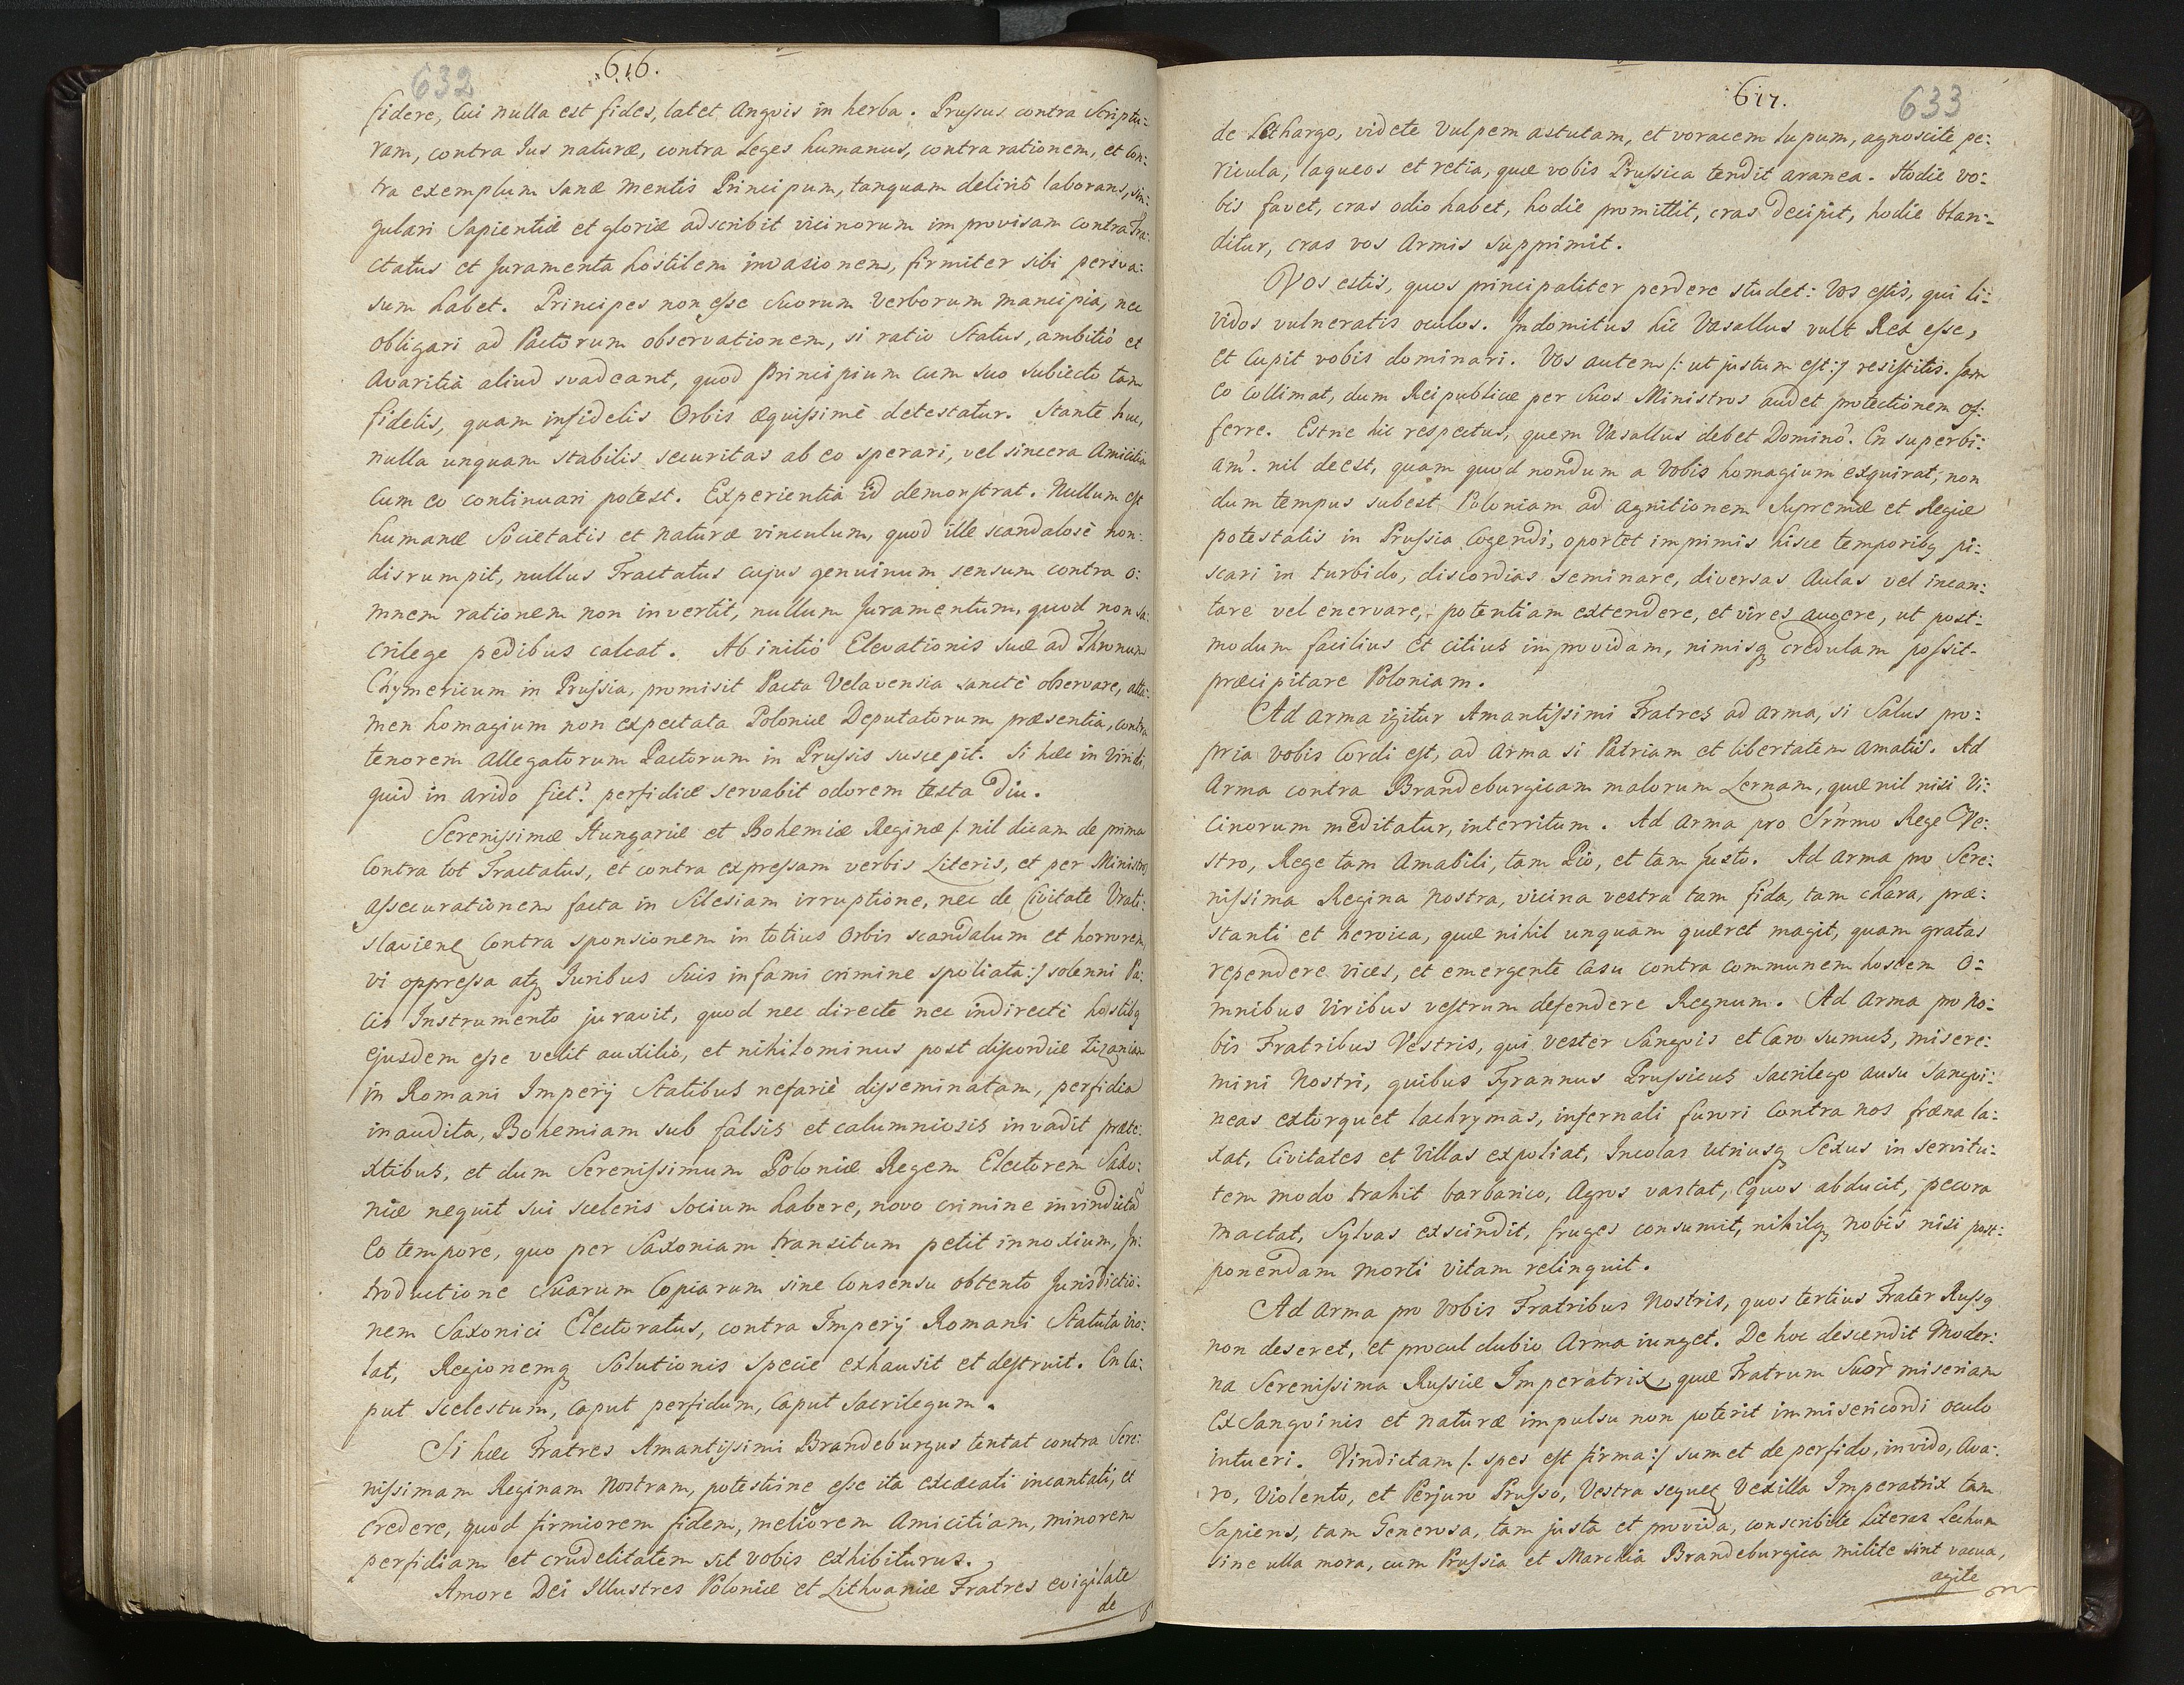 632
616.
fidere, cui nulla est fides, latet Angvis in herba. Prussus contra Scriptu:
ram, contra Jus naturæ, contra Leges humanus, contra rationem, et con:
tra exemplum sanæ mentis Principum, tanquam deliriô laborans, sin:
gulari Sapientiæ et gloriæ adscribit vicinorum improvisam contra Tra:
ctatus et Juramenta hostilem invasionem, firmiter sibi persva:
sum habet. Principes non esse Suorum Verborum mancipia, nec
obligari ad Pactorum observationem, si ratio Status, ambitiô et
Avaritia aliud svadeant, quod Principium cum suo subiecto tam
fidelis, quam infidelis Orbis æquissimè detestatur. Stante hoc,
nulla unquam stabilis securitas ab eo sperari, vel sincera Amicitia
cum eo continuari potest. Experientia id demonstrat. Nullum est
humanæ Societatis et naturæ vinculum, quod ille scandalosè non:
disrumpit, nullus Tractatus cujus genuinum sensum contra o:
mnem rationem non invertit, nullum Juramentum, quod non sa:
crilege pedibus calcat. Ab initiô Elevationis suæ ad Thronum
Chymericum in Prussia, promisit Pacta Velavensia sanctè observare, atta:
men homagium non expectata Poloniæ Deputatorum præsentia, contra
tenorem Allegatorum Pactorum in Prussis suscepit. Si hæc in Viridi,
quid in arido fiet? perfidiæ servabit odorem testa diu.
Serenissimæ Hungariæ et Bohemiæ Reginæ /: nil dicam de prima
Contra tot Tractatus, et contra expressam verbis Literis, et per Ministros
assecurationem facta in Silesiam irruptione, nec de Civitate Vrati:
slaviene contra sponsionem in totius Orbis scandalum et horrorem,
vi oppressa atq Juribus Suis infami crimine spoliata:/ solenni Pa:
cis Instrumento juravit, quod nec directe nec indirectè hostibq
ejusdem esse velit auxiliô, et nihilominus post discordiæ Zizaniam
in Romani Imperij Statibus nefariè disseminatam, perfidia
inaudita, Bohemiam sub falsis et calumniosis invadit præte:
xtibus, et dum Serenissimum Poloniæ Regem Electorem Saxo:
niæ nequit sui sceleris Socium habere, novo crimine invindictâ
Eo tempore, quo per Saxoniam transitum petit innoxium, In:
troductione Suarum Copiarum sine Consensu obtento Jurisdictio:
nem Saxonici Electoratus, contra Imperij Romani Statuta vio:
lat, Regionemq Solutionis specie exhausit et destruit. En Ca:
put Scelestum, Caput perfidum, Caput Sacrilegum.
Si hæc Fratres Amantissimi Brandeburgus tentat contra Sere:
nissimam Reginam Nostram, potestisne esse ita excæcati incantati, et
credere, quod firmiorem fidem, meliorem Amicitiam, minorem
perfidiam et crudelitatem sit vobis exhibiturus.
Amore Dei Illustres Poloniæ et Lithvaniæ Fratres evigilate
de
617.
633
de Lethargo, videte Vulpem astutam, et voracem Lupum, agnoscite pe:
ricula, laqueos et retia, quæ vobis Prussica tendit aranea. Hodie vo:
bis favet, cras odio habet, hodie promittit, cras decipit, hodie blan:
ditur, cras vos Armis Supprimit.
Vos estis, quos principaliter perdere studet: Vos estis, qui li:
vidos vulneratis oculos. Indomitus hic Vasallus vult Rex esse,
et cupit vobis dominari. Vos autem /: ut justum est:/ resistitis. Jam
Eo collimat, dum Reipublicæ per Suos Ministros audet protectionem of:
ferre. Estne hic respectus, quem Vasallus debet Domino? En superbi:
am? nil deest, quam quod nondum a Vobis homagium exquirat, non
dum tempus subest Poloniam ad agnitionem Supremæ et Regiæ
potestatis in Prussia cogendi, oportet imprimis hisce temporibq pi:
scari in turbido, discordias seminare, diversas Aulas vel incan:
tare vel enervare, potentiam extendere, et vires augere, ut post:
modum facilius et citius improvidam, nimisq credulam possit
præcipitare Poloniam.
Ad arma igitur Amantissimi Fratres ad arma, si Salus pro:
pria vobis Cordi est, ad arma si Patriam et libertatem amatis. Ad
Arma contra Brandeburgicam malorum Lernam, quæ nil nisi Vi:
cinorum meditatur, interritum. Ad arma pro Srnmo Rege Ve:
stro, Rege tam Amabili, tam Pio, et tam Justo. Ad arma pro Sere:
nissima Regina Nostra, vicina vestra tam fida, tam chara, præ:
stanti et heroica, quæ nihil unquam quæret magit, quam gratas
rependere vices, et emergente Casu contra communem hostem o:
mnibus Viribus vestrum defendere Regnum. Ad arma pro no:
bis Fratribus Vestris, qui vester Sangvis et Caro sumus, misere:
mini Nostri, quibus Tyrannus Prussicus Sacrilego ausu Sangvi:
neas extorquet lachrymas, infernali furori contra nos fræna la:
xat, Civitates et Villas expoliat, Incolas utriusq Sexus in servitu:
tem modo trahit barbarico, Agros vastat, Equos abducit, pecora
mactat, Sylvas exscindit, fruges consumit, nihilq nobis nisi post:
ponendam morti vitam relinquit.
Ad arma pro Vobis Fratribus Nostris, quos tertius Frater Russq
non deseret, et procul dubio Arma iunget. De hoc descendit Moder:
na Serenissima Russiæ Imperatrix, quæ Fratrum Suor miseriam
Ex Sangvinis et naturæ impulsu non poterit immisericordi oculo
intueri. Vindictam /: spes est firma:/ sumet de perfido, invido, Ava:
ro, Violento, et Perjuro Prusso, Vestra sequet Vexilla Imperatrix tam
Sapiens, tam Generosa, tam justa et provida, conscribite Literas Lechum
sine ulla mora, cum Prussia et Marchia Brandeburgica milite sint vacua,
agite